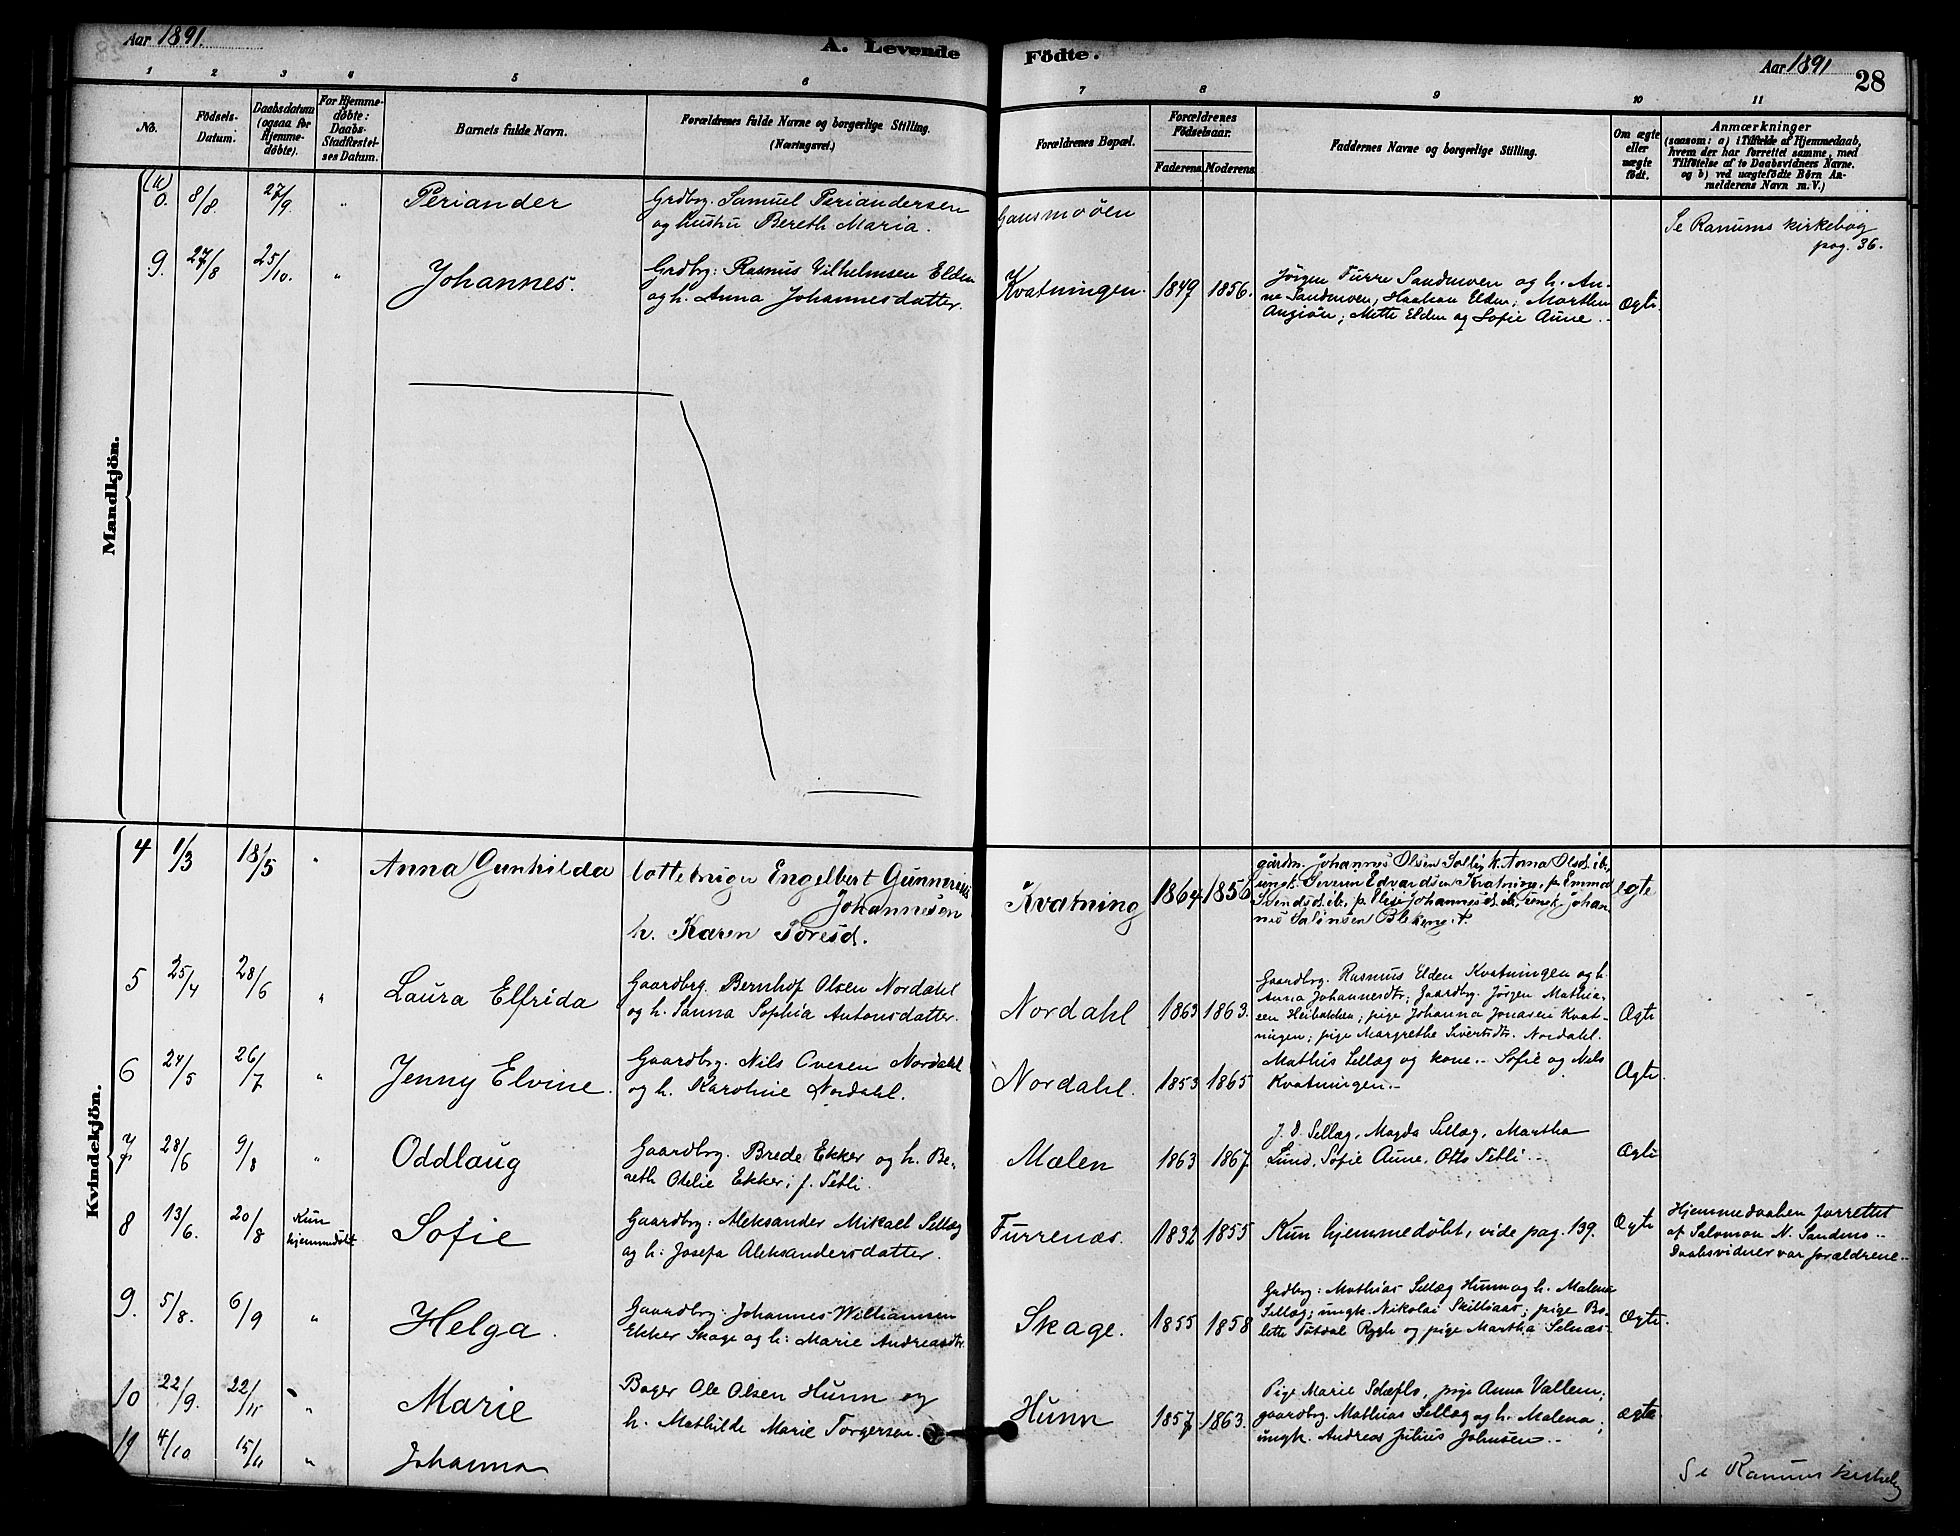 Aar 1891.
A. Levende Födte.
Aar 1891
28
1 2 3 4 5 6 7 8 9 10 11
No.
Födsels-
Datum.
Daabsdatum
(ogsaa for
Hjemme-
döbte).
For Hjemme-
döbte:
Daabs-
Stadfæstel-
ses Datum.
Barnets fulde Navn.
Forældrenes fulde Navne og borgerlige Stilling.
(Næringsvei.)
Forældrenes Bopæl.
Forældrenes
Födselsaar.
Faderens. Moderens.
Faddernes Navne og borgerlige Stilling.
Om ægte
eller
uægte
födt.
Anmærkninger
(saasom: a) i Tilfælde af Hjemmedaab,
hvem der har forrettet samme, med
Tilföielse af to Daabsvidners Navne.
og b) ved uægtefödte Börn An-
melderens Navn m. V.)
Mandkjön.
0. 8/8. 27/9. " Periander
Grdbrg. Samuel Periandersen
og hustru Bereth Maria.
Gansmoöen
Se Ranums kirkebog
pag. 36.
9. 27/8 25/10. " Johannes.
Grdbrg: Rasmus Vilhelmsen Elden
og h. Anna Johannesdatter.
Kvatningen. 1849 1856.
Jörgen Furre Sandmoen og h. An-
ne Sandmoen, Haakon Elden; Marthin
; Mette Elden og Sofie Aune.
Ægte.
Kvindekjön.
4 1/3 18/5 " Anna Gunhilda
Engelbert Gunnerius
Johannesen
h. Karen Toresd.
Kvatning 1864 1856
gårdm. Johannes Olsen h. Anna Olsd. ib,
ungk. Severin Edvardsen Kvatning, p. Emma
Svendsd. ib, p. Elise Johannesd. ib, ungk. Johan
nes
egte
5 25/4 28/6 " Laura Elfrida
Gaardbrg. Bernhof Olsen Nordahl
og h. Sanna Sophia Antonsdatter.
Nordahl 1863 1863.
Gaardbrg. Rasmus Elden Kvatningen og h.
Anna Johannesdtr; Gaardbrg. Jörgen Mathia-
sen ; pige Johanna Jonasen Kvat-
ningen; pige Margrethe Sivertsdtr. Nordahl.
Ægte
6 24/5 26/7 " Jenny Elvine.
Gaardbrg. Nils Ovesen Nordahl
og h. Karoline Nordahl.
Nordahl. 1853 1865
Mathis Sellæg og kone - Sofie og Nils
Kvatningen.-
Ægte
7 28/6 9/8 " Oddlaug
Gaardbrg. Brede Ekker og h. Be-
reth Otelie Ekker; f. Tetli.
Mælen 1863 1867
J. O. Sellæg, Magda Sellæg, Martha
Lund, Sofie Aune, Otto Tetli.-
Ægte
8 13/6. 20/8 Kun
hjemmedöbt Sofie
Gaardbrg: Aleksander Mikael Sellæg
og h: Josefa Aleksandersdatter.
Furrenæs. 1832 1855
Kun hjemmedøbt, vide pag. 139.
Ægte
Hjemmedaaben forrettet
af Salomon N. Sandmo -
Daabsvidner var forældrene -
9. 5/8. 6/9 " Helga.
Gaardbrg: Johannes Williamsen
Ekker Skage og h: Marie Andreasdtr
Skage. 1855 1858
Grdbrg: Mathias Sellæg Hunn og h. Malena
Sellæg; ungk. Nikolai Skillsaas; pige Bo-
lette Rygh og pige Martha Selnæs-
Ægte.
10 22/9. 22/11 " Marie
Bager Ole Olsen Hunn og
h. Mathilde Marie Torgersen.
Hunn 1857 1863.
Pige Marie Scheflo, pige Anna Vallem;
gaardbrg. Mathias Sellæg og h. Malena;
ungk. Andreas Julius Johnsen.-
ægte
4/10. 15/11 " Johanna
Se Ranums